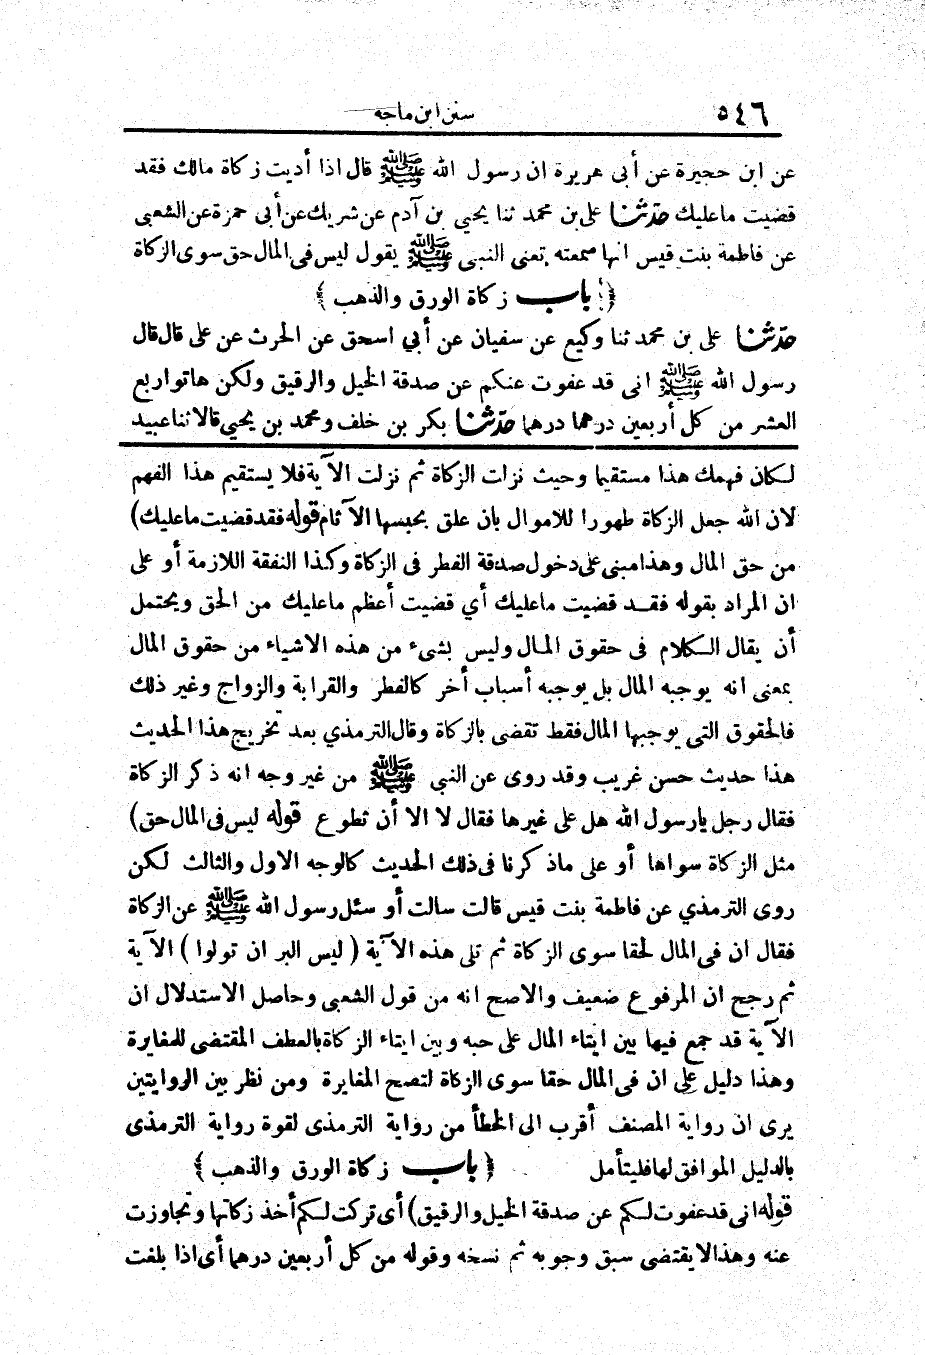 ٥٤٦ سنن ابن ماجه
عن ابن حجيرة عن أبى هريرة ان رسول الله ﷺ قال اذا أديت زكاة مالك فقد
قضيت ماعليك حدّثنا على بن محمد ثنا يحيى بن آدم عن شريك عن أبى حمزة عن الشعبى
عن فاطمة بنت قيس انها سمعته تعنى النبى ﷺ يقول ليس فى المال حق سوى الزكاة
﴿ باب زكاة الورق والذهب ﴾
حدّثنا على بن محمد ثنا وكيع عن سفيان عن أبي اسحق عن الحرث عن على قال قال
رسول الله ﷺ انى قد عفوت عنكم عن صدقة الخيل والرقيق ولكن هاتوا ربع
العشر من كل أربعين درهما درهما حدّثنا بكر بن خلف ومحمد بن يحيى قالا ثنا عبيد
لكان فهمك هذا مستقيما وحيث نزلت الزكاة ثم نزلت الآية فلا يستقيم هذا الفهم
لان الله جعل الزكاة طهورا للاموال بان علق بحبسها الآثام قوله فقد قضيت ماعليك)
من حق المال وهذا مبنى على دخول صدقة الفطر فى الزكاة وكذا النفقة اللازمة أو على
ان المراد بقوله فقد قضيت ماعليك أي قضيت أعظم ماعليك من الحق ويحتمل
أن يقال الكلام فى حقوق المال وليس بشىء من هذه الاشياء من حقوق المال
بمعنى انه يوجبه المال بل يوجبه أسباب أخر كالفطر والقرابة والزواج وغير ذلك
فالحقوق التى يوجبها المال فقط تقضى بالزكاة وقال الترمذي بعد تخريج هذا الحديث
هذا حديث حسن غريب وقد روى عن النبى ﷺ من غير وجه انه ذكر الزكاة
فقال رجل يارسول الله هل على غيرها فقال لا الا أن تطوع قوله ليس فى المال حق)
مثل الزكاة سواها أو على ماذكرنا فى ذلك الحديث كالوجه الاول والثالث لكن
روى الترمذي عن فاطمة بنت قيس قالت سالت أو سئل رسول الله ﷺ عن الزكاة
فقال ان فى المال لحقا سوى الزكاة ثم تلى هذه الآية ( ليس البر ان تولوا ) الآية
ثم رجح ان المرفوع ضعيف والاصح انه من قول الشعبى وحاصل الاستدلال ان
الآية قد جمع فيها بين ايتاء المال على حبه وبين ايتاء الزكاة بالعطف المقتضى للمغايرة
وهذا دليل على ان فى المال حقا سوى الزكاة لتصح المغايرة ومن نظر بين الروايتين
يرى ان رواية المصنف أقرب الى الخطأ من رواية الترمذى لقوة رواية الترمذى
بالدليل الموافق لها فليتأمل ﴿ باب زكاة الورق والذهب ﴾
قوله انى قد عفوت لكم عن صدقة الخيل والرقيق) أى تركت لكم أخذ زكاتها وتجاوزت
عنه وهذا لا يقتضى سبق وجوبه ثم نسخه وقوله من كل أربعين درهما أى اذا بلغت